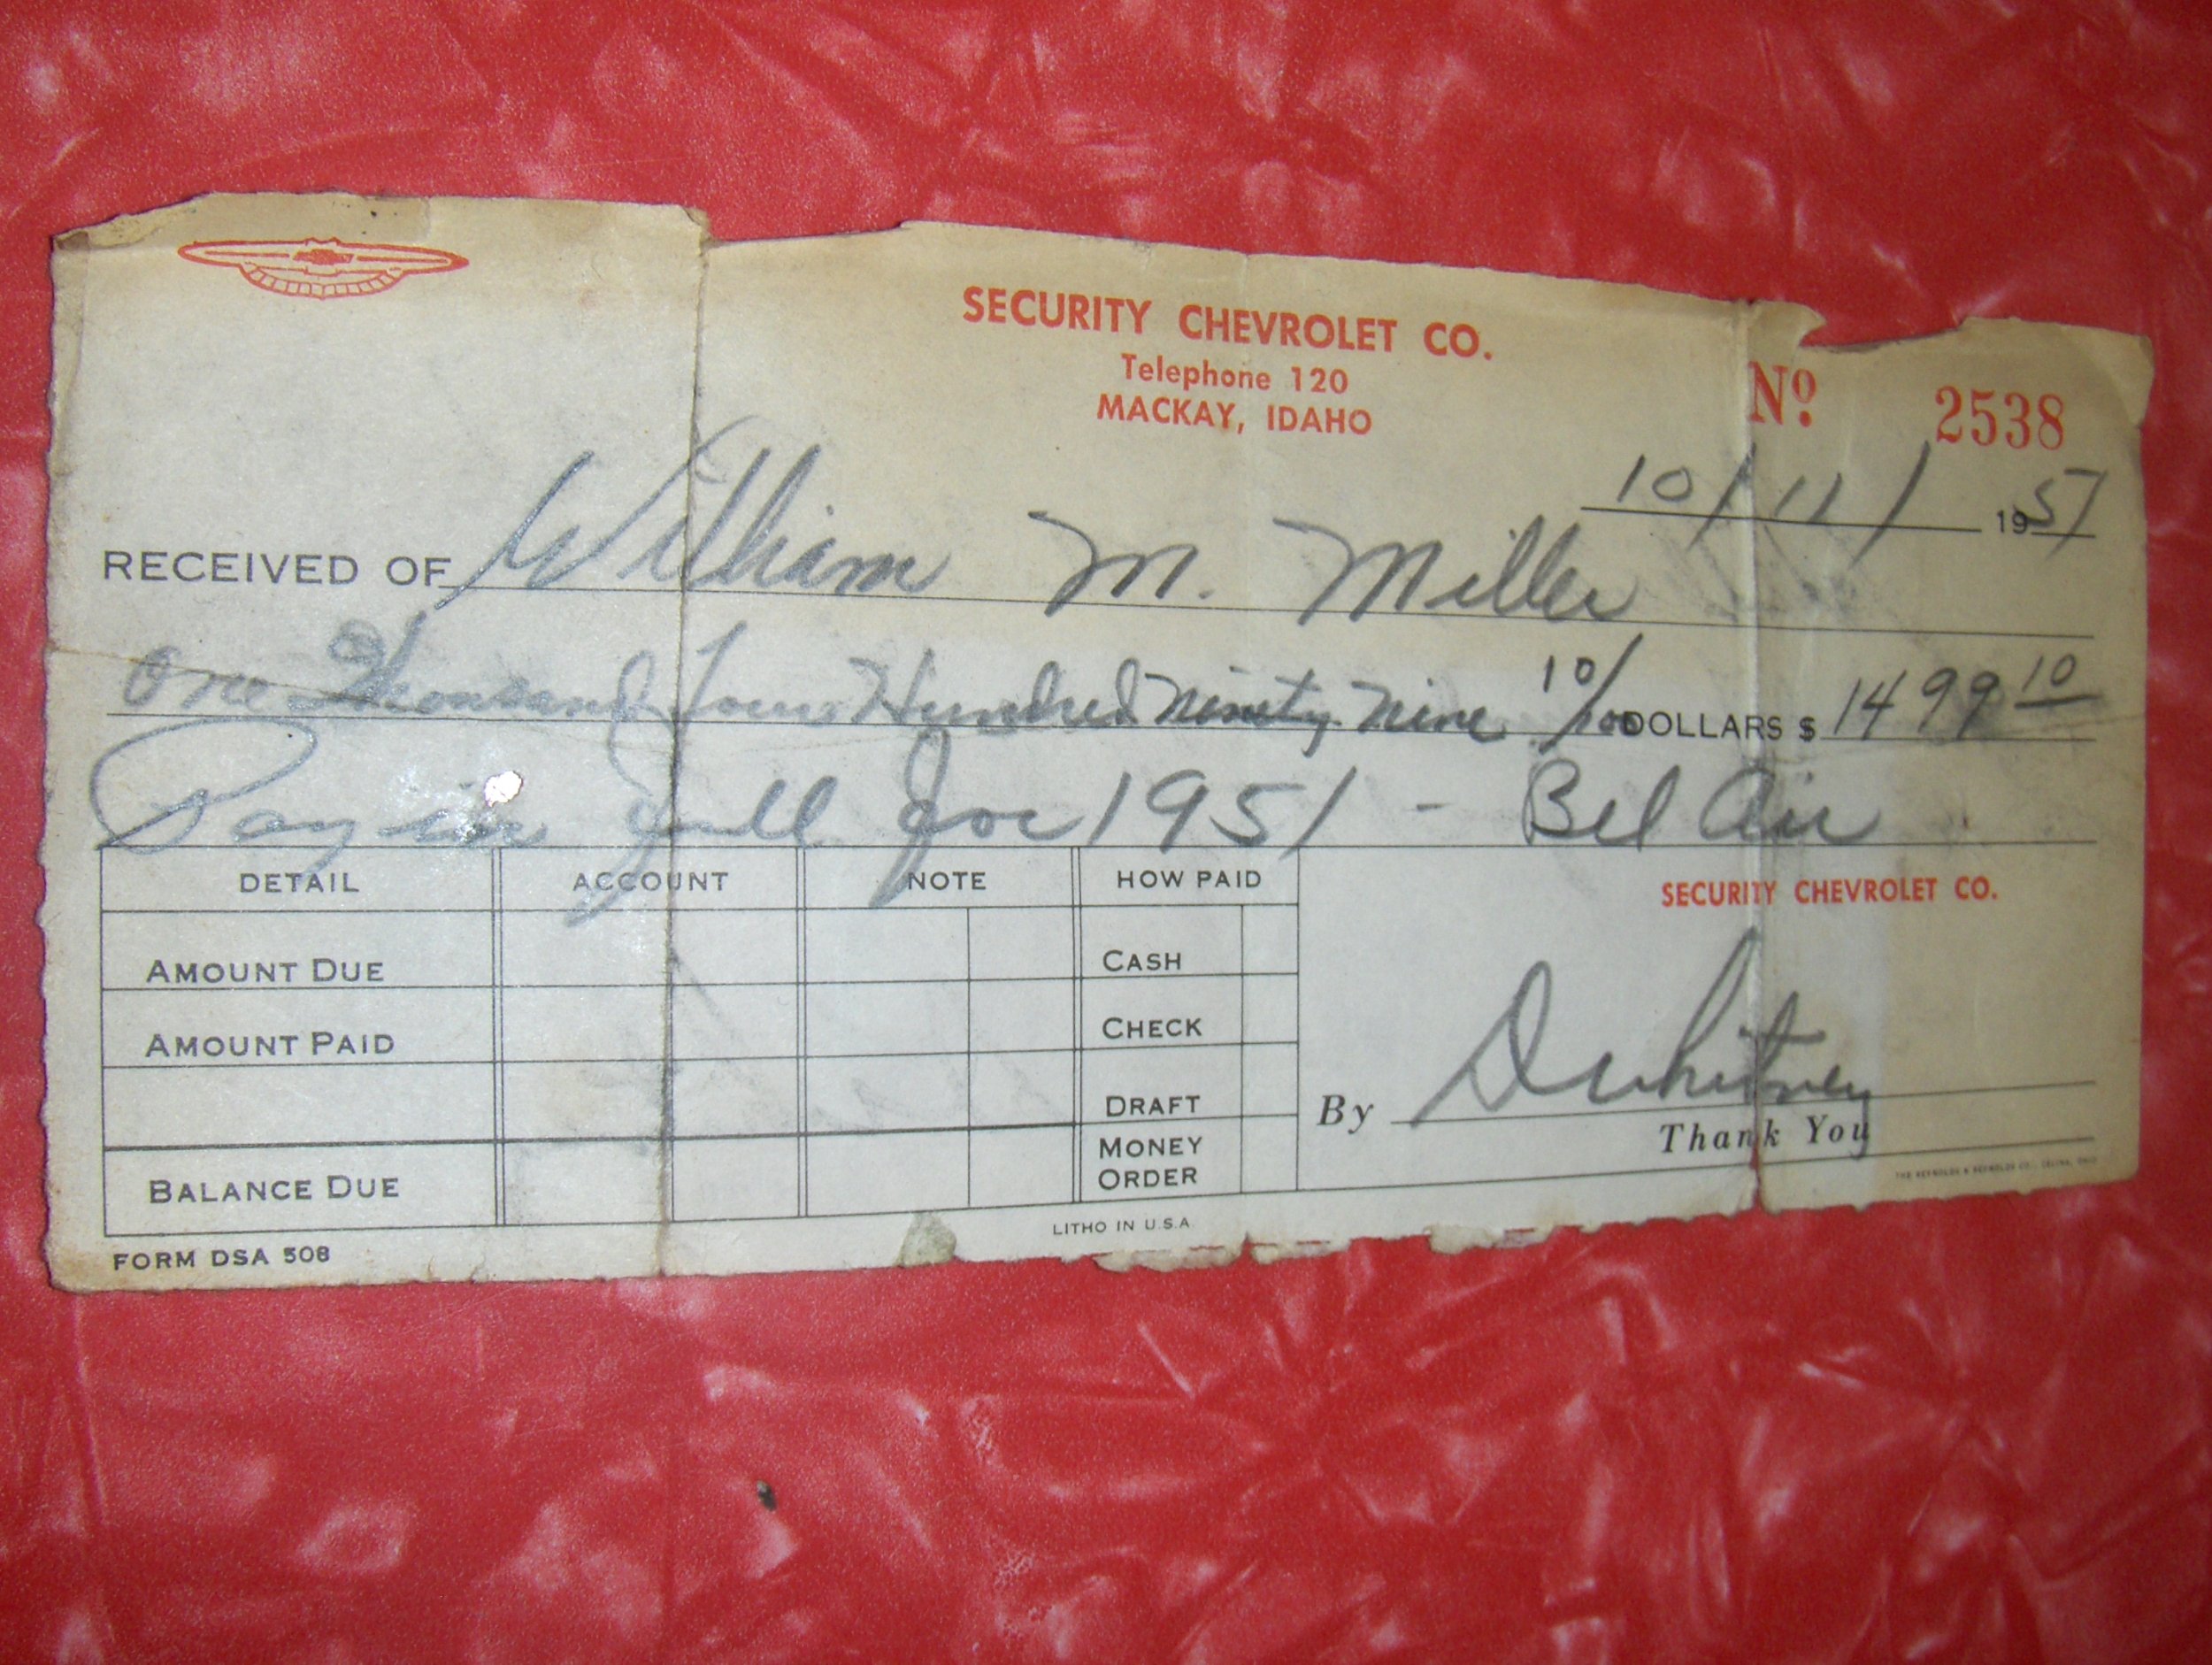 SECURITY CHEVROLET CO.
Telephone 120
MACKAY, IDAHO
Nº 2538
10/11/ 1951
RECEIVED OF William M. Miller
One Thousand Four Hundred Ninety Nine 10/100 DOLLARS $ 1499 10
Pay in full for 1951 - Bel Air
DETAIL ACCOUNT NOTE HOW PAID
SECURITY CHEVROLET CO.
AMOUNT DUE CASH
AMOUNT PAID CHECK
DRAFT
By D Whitney
MONEY ORDER
Thank You
BALANCE DUE
THE REYNOLDS & REYNOLDS CO., CELINA, OHIO
LITHO IN U.S.A.
FORM DSA 508